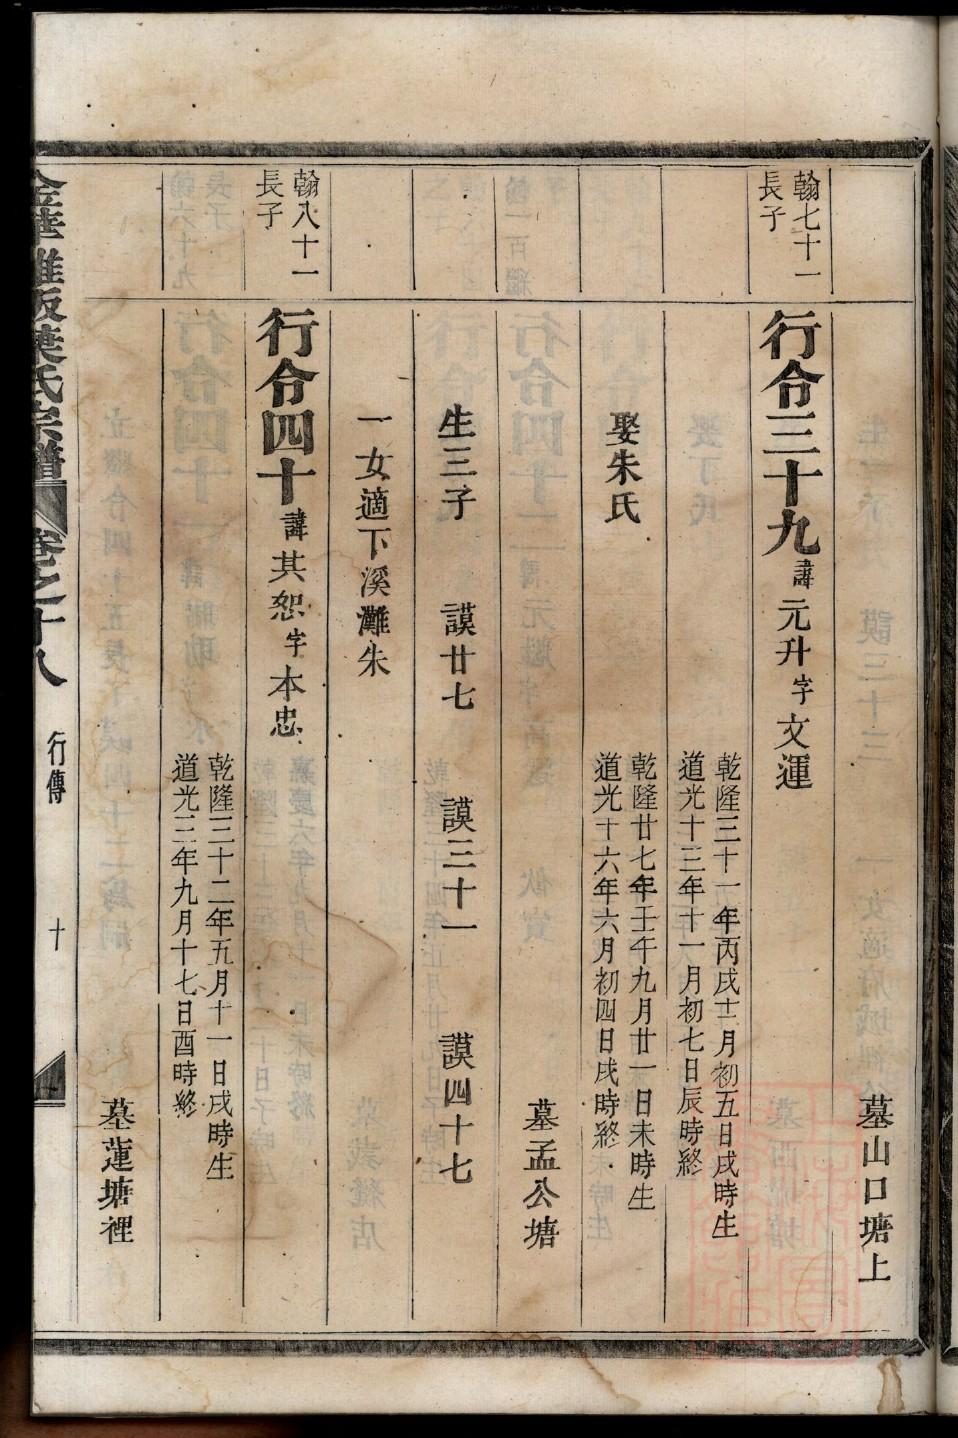 墓山口塘上
翰七十一
長子
行令三十九諱元升字文運
乾隆三十一年丙戌十二月初五日戌時生
道光十三年十一月初七日辰時終
娶朱氏
乾隆廿七年壬午九月廿一日未時生
道光十六年六月初四日戌時終
墓孟公塘
生三子 謨廿七 謨三十一 謨四十七
一女適下溪灘朱
翰八十一
長子
行令四十諱其恕字本忠
乾隆三十二年五月十一日戌時生
道光三年九月十七日酉時終
墓蓮塘裡
葉氏宗譜 卷之十八 行傳 十